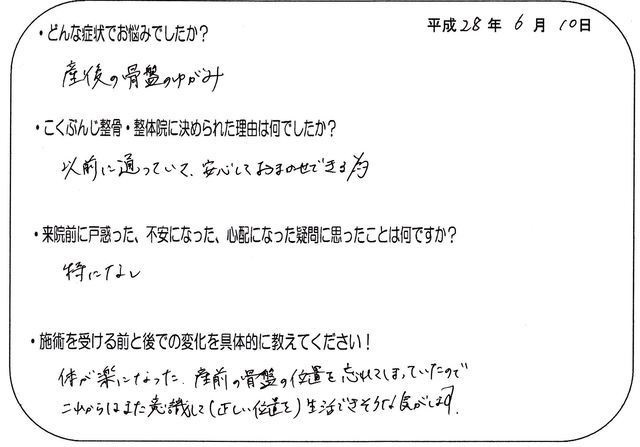 平成28年 6月 10日
・どんな症状でお悩みでしたか？
産後の骨盤のゆがみ
・こくぶんじ整骨・整体院に決められた理由は何でしたか？
以前に通っていて、安心しておまかせできる為
・来院前に戸惑った、不安になった、心配になった疑問に思ったことは何ですか？
特になし
・施術を受ける前と後での変化を具体的に教えてください！
体が楽になった。産前の骨盤の位置を忘れてしまっていたので
これからはまた意識して(正しい位置を)生活できそうな気がします。